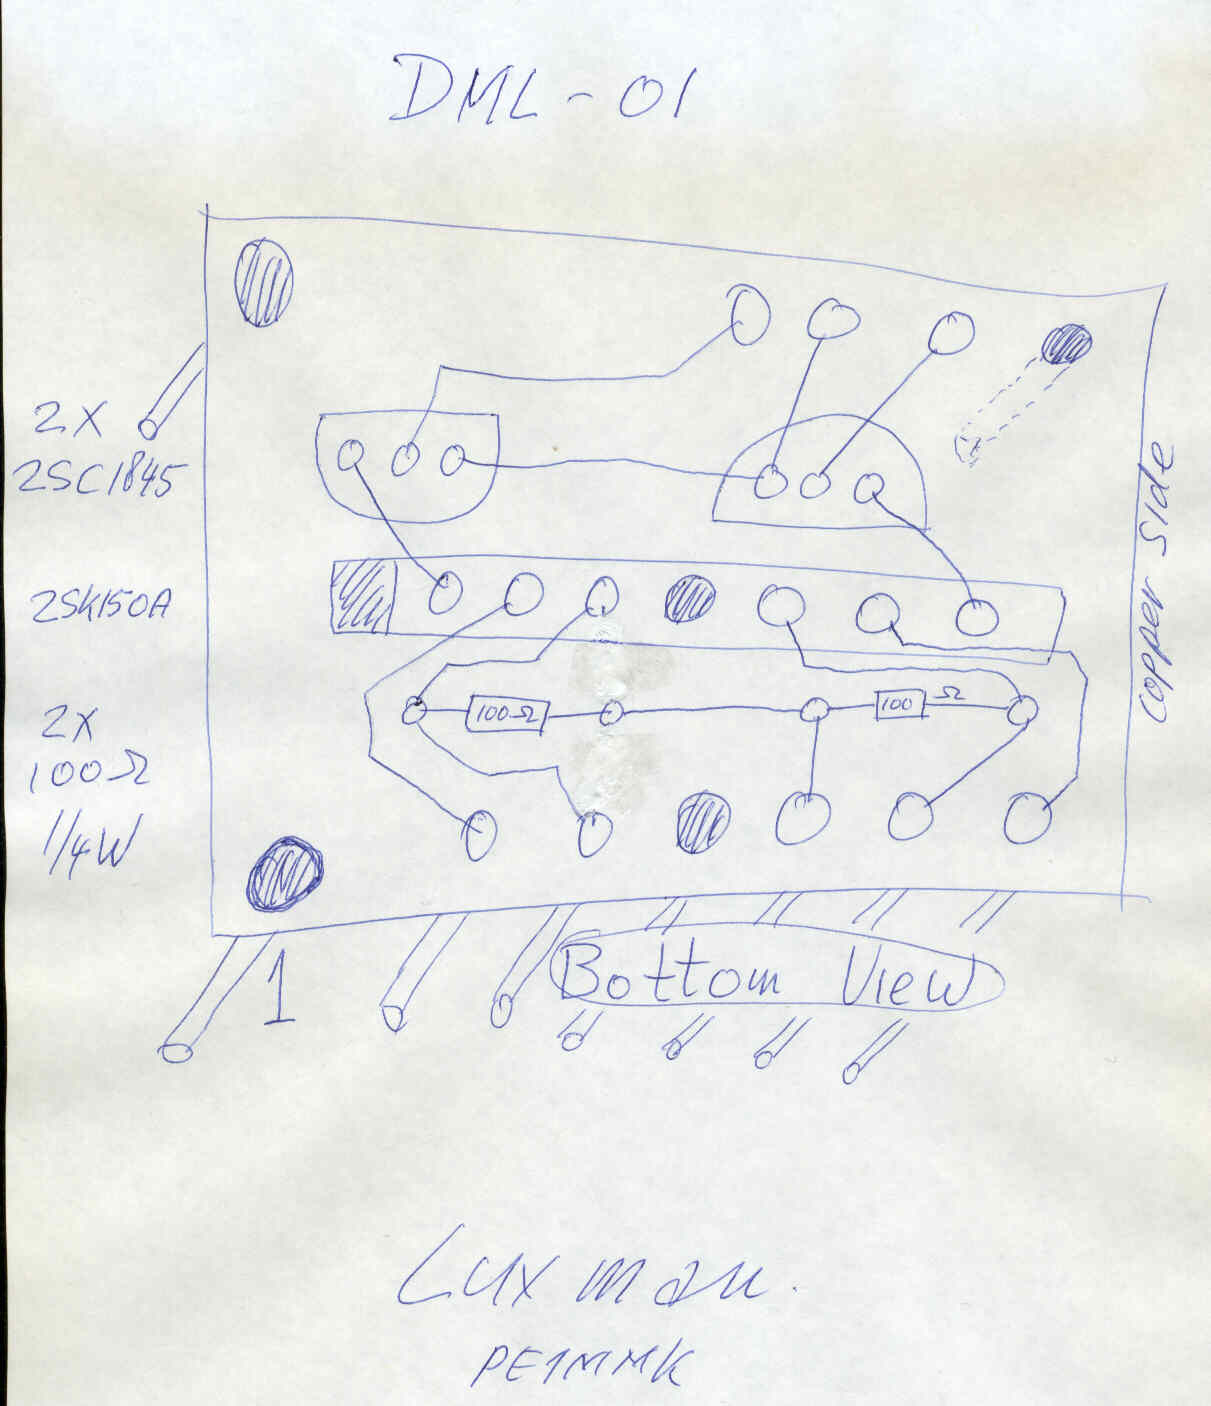 DML-01
2X
2SC1845
2SK150A
100Ω
100 Ω
2X
100Ω
1/4W
Copper Side
1
Bottom View
Luxman.
PE1MMK